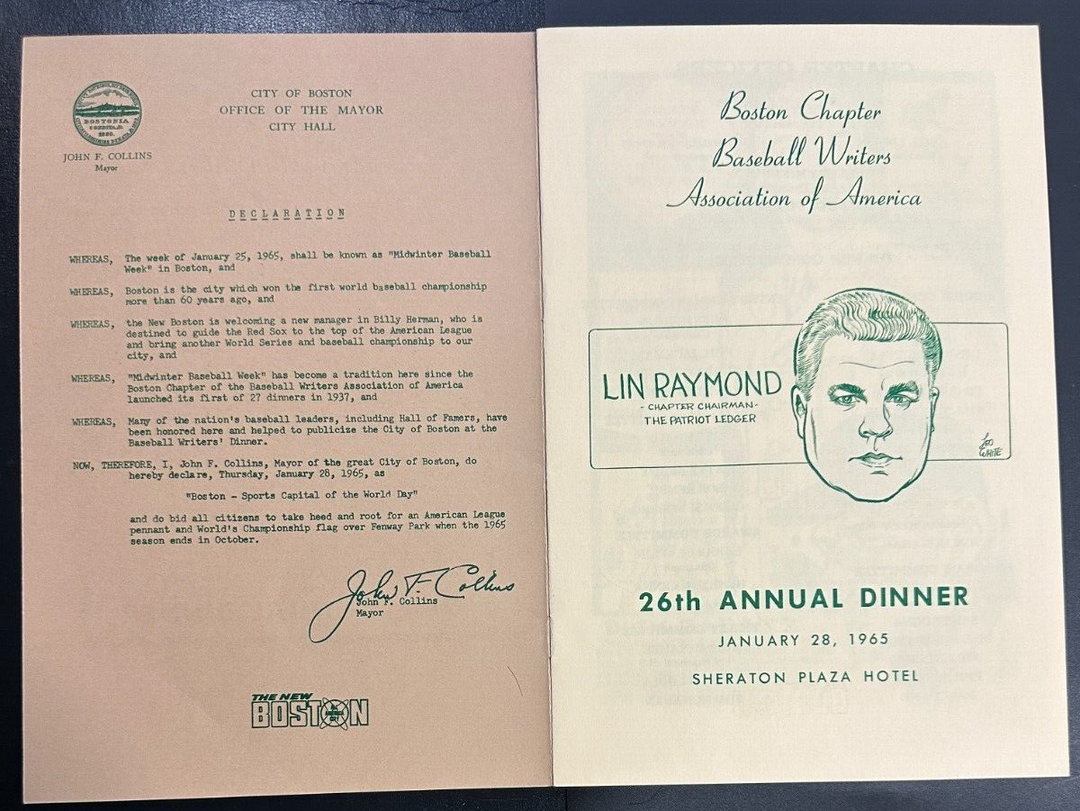 CITY OF BOSTON
OFFICE OF THE MAYOR
CITY HALL
BOSTONIA
CONDITA A.D.
1630.
JOHN F. COLLINS
Mayor
DECLARATION
WHEREAS, The week of January 25, 1965, shall be known as "Midwinter Baseball
Week" in Boston, and
WHEREAS, Boston is the city which won the first world baseball championship
more than 60 years ago, and
WHEREAS, the New Boston is welcoming a new manager in Billy Herman, who is
destined to guide the Red Sox to the top of the American League
and bring another World Series and baseball championship to our
city, and
WHEREAS, "Midwinter Baseball Week" has become a tradition here since the
Boston Chapter of the Baseball Writers Association of America
launched its first of 27 dinners in 1937, and
WHEREAS, Many of the nation's baseball leaders, including Hall of Famers, have
been honored here and helped to publicize the City of Boston at the
Baseball Writers' Dinner.
NOW, THEREFORE, I, John F. Collins, Mayor of the great City of Boston, do
hereby declare, Thursday, January 28, 1965, as
"Boston - Sports Capital of the World Day"
and do bid all citizens to take heed and root for an American League
pennant and World's Championship flag over Fenway Park when the 1965
season ends in October.
John F. Collins
John F. Collins
Mayor
THE NEW
BOSTON
Boston Chapter
Baseball Writers
Association of America
LIN RAYMOND
- CHAPTER CHAIRMAN -
THE PATRIOT LEDGER
WHITE
26th ANNUAL DINNER
JANUARY 28, 1965
SHERATON PLAZA HOTEL